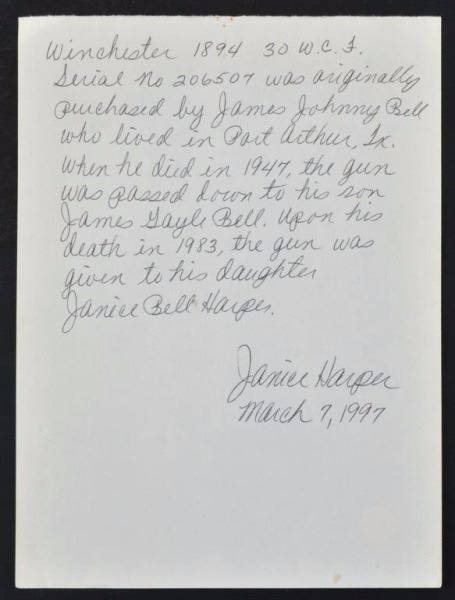 Winchester 1894 30 W.C.F.
Serial No 206507 was originally
purchased by James Johnny Bell
who lived in Port Arthur, Tx.
When he died in 1947, the gun
was passed down to his son
James Gayle Bell. Upon his
death in 1983, the gun was
given to his daughter
Janice Bell Harper.
Janice Harper
March 7, 1997